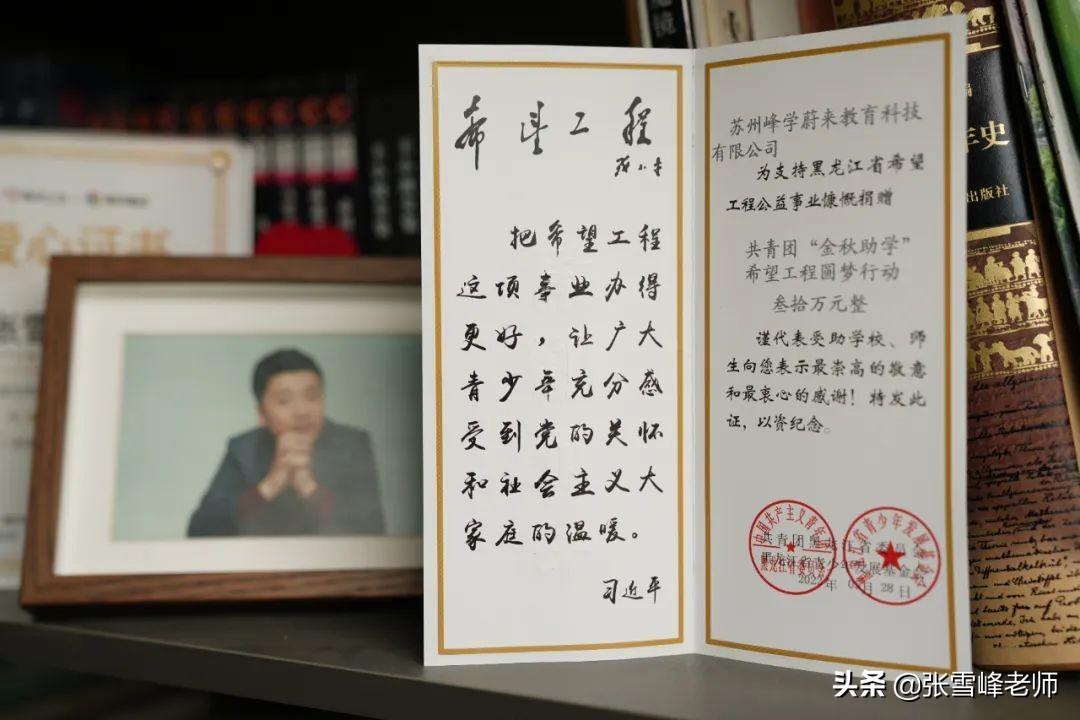 希望工程
邓小平
把希望工程
这项事业办得
更好，让广大
青少年充分感
受到党的关怀
和社会主义大
家庭的温暖。
习近平
苏州峰学蔚来教育科技
有限公司
为支持黑龙江省希望
工程公益事业慷慨捐赠
共青团“金秋助学”
希望工程圆梦行动
叁拾万元整
谨代表受助学校、师
生向您表示最崇高的敬意
和最衷心的感谢！特发此
证，以资纪念。
共青团黑龙江省委员会
黑龙江省青少年发展基金会
28日
爱心证书
年史
出版社
头条 @张雪峰老师